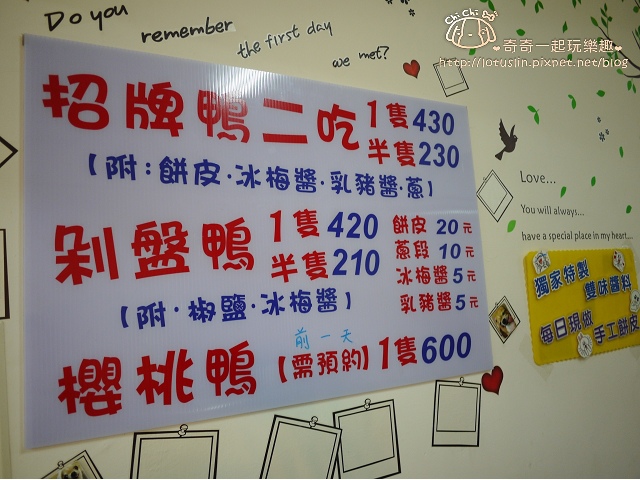 Do you
remember
the first day
we met?
Chi Chi
奇奇一起玩樂趣
http://lotuslin.pixnet.net/blog
招牌鴨二吃 1隻430
半隻230
【附:餅皮·冰梅醬·乳豬醬·蔥】
剁盤鴨 1隻420
半隻210
【附·椒鹽·冰梅醬】
餅皮 20元
蔥段 10元
冰梅醬 5元
乳豬醬 5元
前一天
櫻桃鴨【需預約】1隻600
Love...
You will always...
have a special place in my heart...
獨家特製
雙味醬料
每日現做
手工餅皮